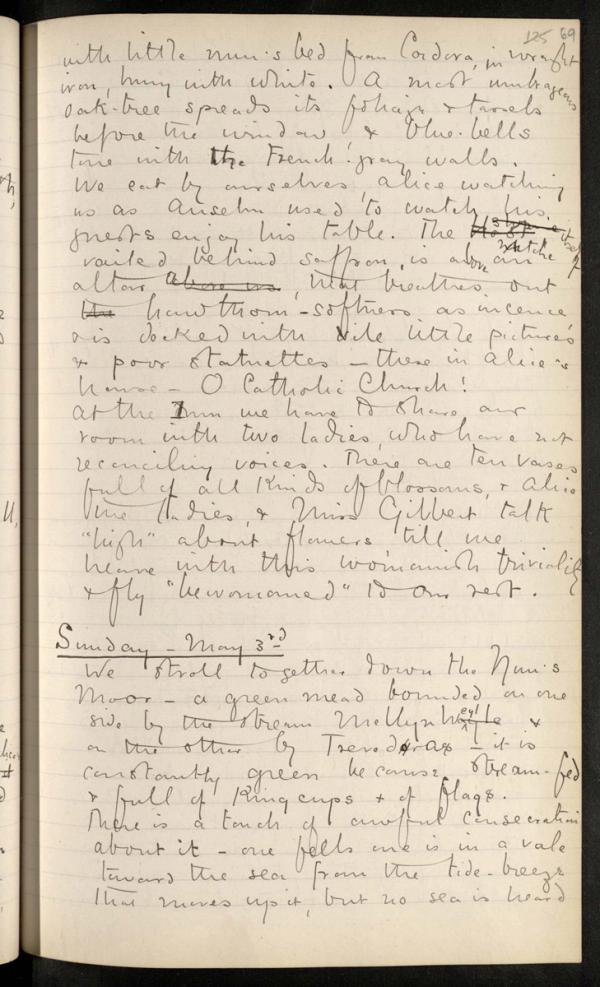 125 69
with little nun's bed from Cordova, in wrought
iron, hung with white. A most umbrageous
oak-tree spreads its foliage & tassels
before the window & blue-bells
tone with the French-gray walls.
We eat by ourselves, Alice watching
us as Anselm used to watch his
guests enjoy his table. The
vailed behind saffron, is above an
altar above us, that breathes out
the hawthorn-softness as incence
& is decked with vile little pictures
& poor statuettes – these in Alice's
house – O Catholic Church!
At the Inn we have to share our
room with two ladies, who have not
reconciling voices. There are ten vases
full of all kinds of blossoms, & Alice
the ladies, & Miss Gilbert talk
"high" about flowers till we
heave with this womanish triviality
& fly "bewomaned" to our rest.
Sunday – May 3rd
We stroll together down the Nun's
Moor – a green mead bounded on one
side by the stream &
on the other by – it is
constantly green because stream-fed
& full of King cups & of flags.
There is a touch of awful consecration
about it – one fells one is in a vale
toward the sea from the tide-breeze
that moves up it, but no sea is heard